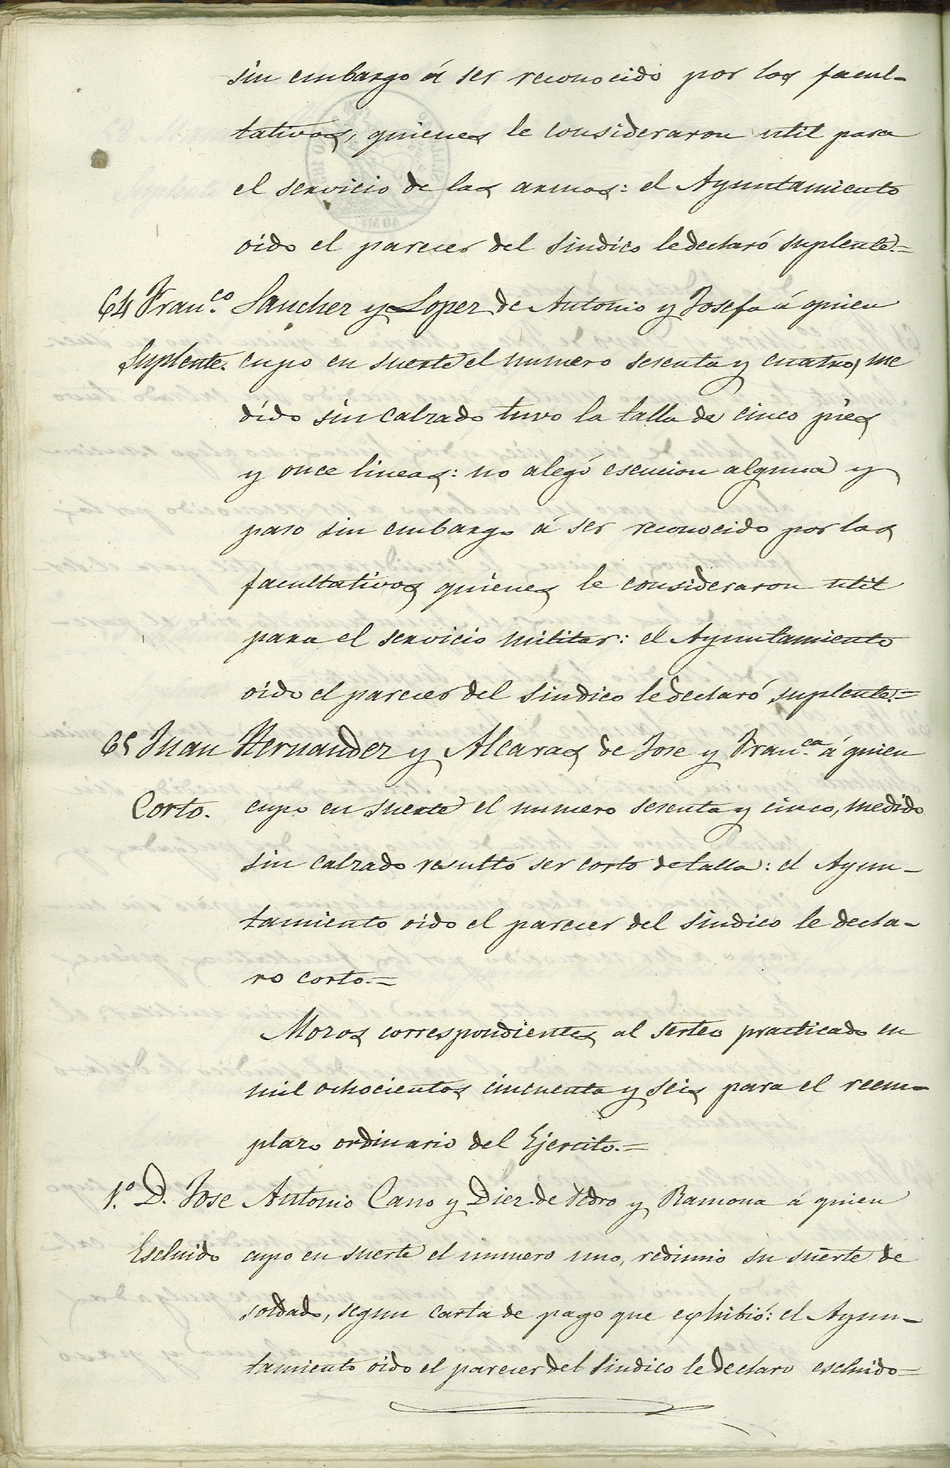 sin embargo á ser reconocido por los facul-
tativos, quienes le consideraron util para
el servicio de las armas: el Ayuntamiento
oido el parecer del Sindico le declaró suplente.=
64 Fran.co Sanchez y Lopez de Antonio y Josefa á quien
Suplente. cupo en suerte el numero sesenta y cuatro, me
dido sin calzado tuvo la talla de cinco pies
y once lineas: no alegó escucion alguna y
paso sin embargo á ser reconocido por los
facultativos quienes le consideraron util
para el servicio militar: el Ayuntamiento
oido el parecer del Sindico le declaró suplente.=
65 Juan Hernandez y Alcaras de Jose y Fran.ca á quien
Corto. cupo en suerte el numero sesenta y cinco, medido
sin calzado resultó ser corto de talla: el Ayun-
tamiento oido el parecer del Sindico le decla-
ro corto.=
Mozos correspondientes al sorteo practicado en
mil ochocientos cincuenta y seis para el reem-
plazo ordinario del Ejercito.=
1.º D. Jose Antonio Cano y Diez de Pedro y Ramona á quien
Escluido cupo en suerte el numero uno, redimio su suerte de
soldado, segun carta de pago que exhibió: el Ayun-
tamiento oido el parecer del Sindico le declaro escluido=